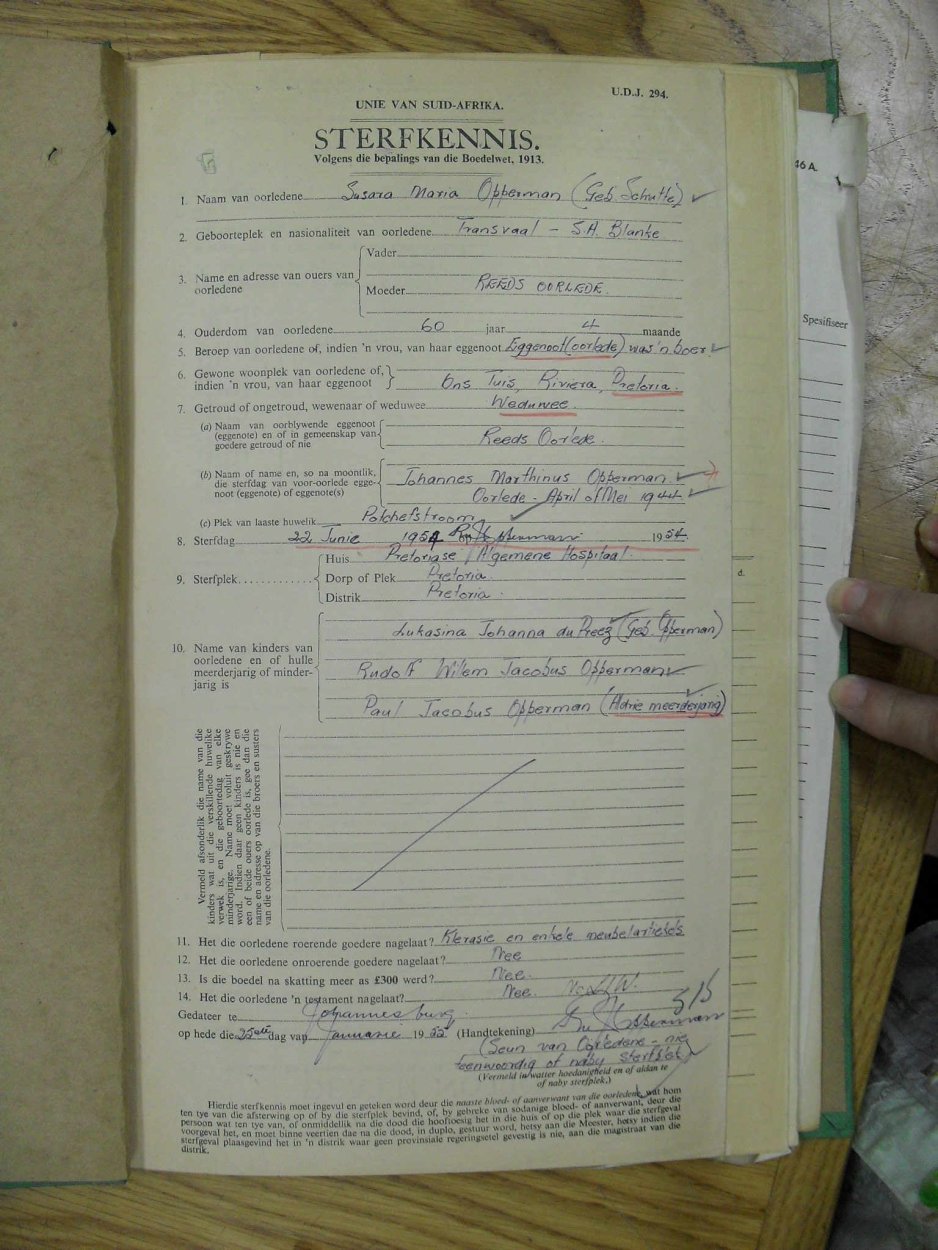 U.D.J. 294.
UNIE VAN SUID-AFRIKA.
STERFKENNIS.
Volgens die bepalings van die Boedelwet, 1913.
46 A.
1. Naam van oorledene Susara Maria Opperman (Geb. Schutte)
2. Geboorteplek en nasionaliteit van oorledene Transvaal - S.A. Blanke
3. Name en adresse van ouers van oorledene
Vader
Moeder REEDS OORLEDE.
Spesifiseer
4. Ouderdom van oorledene 60 jaar 4 maande
5. Beroep van oorledene of, indien 'n vrou, van haar eggenoot Eggenoot (oorlede) was 'n boer
6. Gewone woonplek van oorledene of,
indien 'n vrou, van haar eggenoot Ons Tuis, Riviera, Pretoria.
7. Getroud of ongetroud, wewenaar of weduwee Weduwee.
(a) Naam van oorblywende eggenoot
(eggenote) en of in gemeenskap van
goedere getroud of nie Reeds Oorlede.
(b) Naam of name en, so na moontlik,
die sterfdag van voor-oorlede egge-
noot (eggenote) of eggenote(s)
Johannes Marthinus Opperman
Oorlede - April of Mei 1944
(c) Plek van laaste huwelik Potchefstroom
8. Sterfdag 22 Junie 1954 Opperman 1954.
9. Sterfplek
Huis Pretoriase Algemene Hospitaal.
Dorp of Plek Pretoria.
d.
Distrik Pretoria.
10. Name van kinders van
oorledene en of hulle
meerderjarig of minder-
jarig is
Lukasina Johanna du Preez (Geb. Opperman)
Rudolf Willem Jacobus Opperman
Paul Jacobus Opperman (Aldrie meerderjarig)
Vermeld afsonderlik die name van die
kinders wat uit die verskillende huwelike
verwek is, en die geboortedag van elke
minderjarige. Name moet voluit geskrywe
word. Indien daar geen kinders is nie en
een of beide ouers oorlede is, gee dan die
name en adresse op van die broers en susters
van die oorledene.
11. Het die oorledene roerende goedere nagelaat? Klerasie en enkele meubelartiekels
12. Het die oorledene onroerende goedere nagelaat? Nee
13. Is die boedel na skatting meer as £300 werd? Nee.
14. Het die oorledene 'n testament nagelaat? Nee.
Gedateer te Johannesburg.
op hede die 25ste dag van Januarie 1955 (Handtekening) Opperman
(Seun van Oorledene - nie
teenwoordig of naby sterfplek)
(Vermeld in watter hoedanigheid en of aldan te
of naby sterfplek.)
Hierdie sterfkennis moet ingevul en geteken word deur die naaste bloed- of aanverwant van die oorledene, wat hom
ten tye van die afsterwing op of by die sterfplek bevind, of, by gebreke van sodanige bloed- of aanverwant, deur die
persoon wat ten tye van, of onmiddellik na die dood die hooftoesig het in die huis of op die plek waar die sterfgeval
voorgeval het, en moet binne veertien dae na die dood, in duplo, gestuur word, hetsy aan die Meester, hetsy indien die
sterfgeval plaasgevind het in 'n distrik waar geen provinsiale regeringsetel gevestig is nie, aan die magistraat van die
distrik.